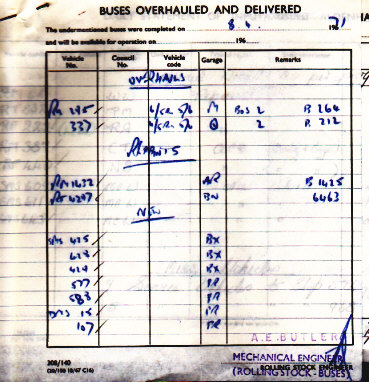 BUSES OVERHAULED AND DELIVERED
The undermentioned buses were completed on 8.4. 1971
and will be available for operation on 196
Vehicle No. Council No. Vehicle code Garage Remarks
OVERHAULS
RM 295 M BOS 2 B 264
337 Q 2 B 212
REPAINTS
RM 1632 AR B 1425
RT 4297 BN 6463
NEW
SMS 425 BX
428 BX
429 BX
577 PR
583 PR
DMS 15 PR
107 PR
A.E.BUTLER
MECHANICAL ENGINEER
ROLLING STOCK ENGINEER
(ROLLING STOCK - BUSES)
208/140